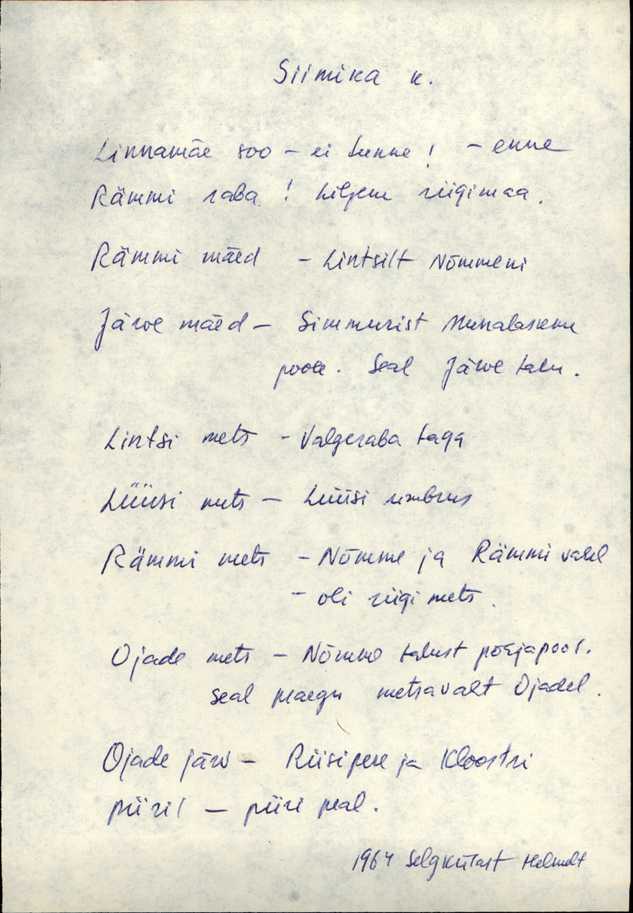 Siimika k.
Linnamäe soo - ei tunne! - enne
Rämmi raba! hiljem riigimaa.
Rämmi mäed - Lintsilt Nõmmeni
Järve mäed - Simmurist Munalaskme
poole. Seal Järve talu.
Lintsi mets - Valgeraba taga
Lüüsi mets - Lüüsi ümbrus
Rämmi mets - Nõmme ja Rämmi vahel
- oli riigi mets.
Ojade mets - Nõmme talust põhjapool.
Seal praegu metsavaht Ojadel.
Ojade järv - Riisipere ja Kloostri
piiril - piiri peal.
1964 Selgkülast Helmult